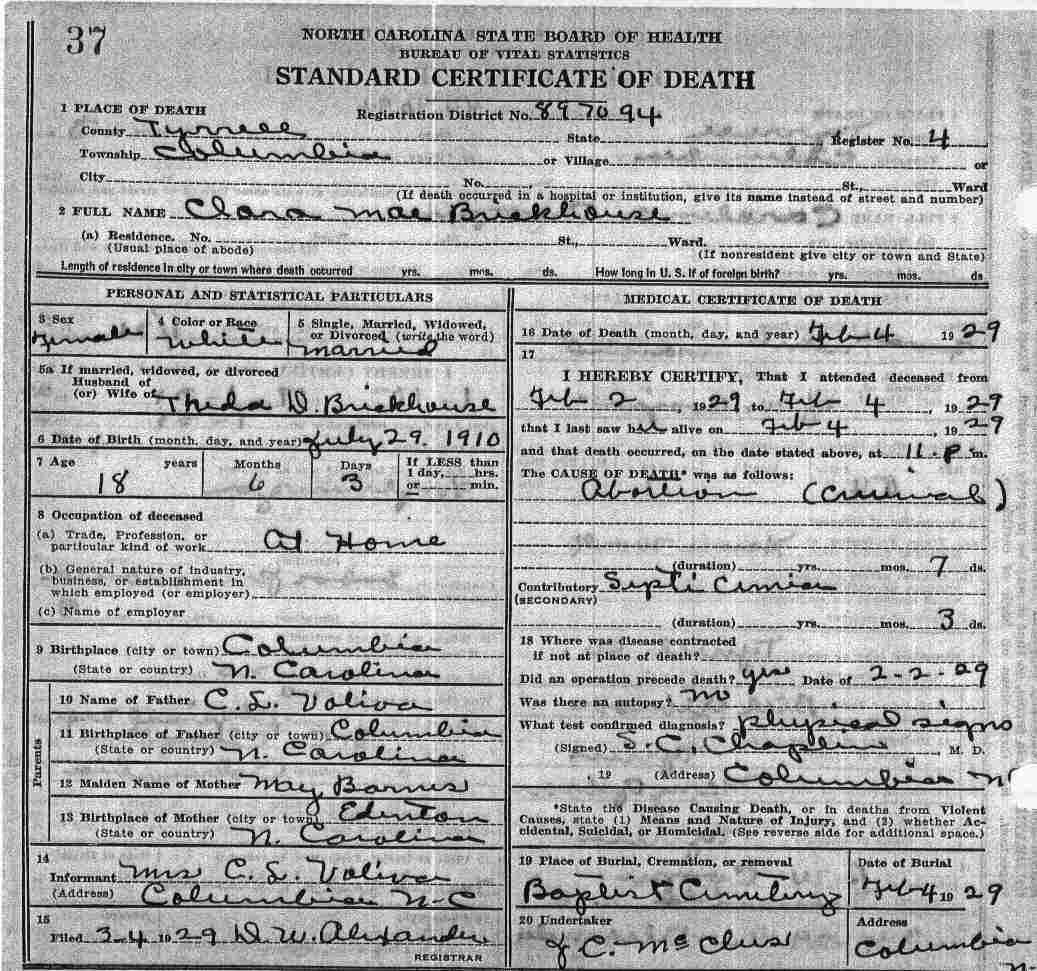 37
NORTH CAROLINA STATE BOARD OF HEALTH
BUREAU OF VITAL STATISTICS
STANDARD CERTIFICATE OF DEATH
1 PLACE OF DEATH Registration District No. 897094
County Tyrrell State Register No. 4
Township Columbia or Village or
City No. , St., Ward
(If death occurred in a hospital or institution, give its name instead of street and number)
2 FULL NAME Clara Mae Brickhouse
(a) Residence. No. St., Ward.
(Usual place of abode) (If nonresident give city or town and State)
Length of residence in city or town where death occurred yrs. mos. ds. How long in U. S. if of foreign birth? yrs. mos. ds
PERSONAL AND STATISTICAL PARTICULARS
3 Sex 4 Color or Race 5 Single, Married, Widowed,
or Divorced (write the word)
Female White married
5a If married, widowed, or divorced
Husband of
(or) Wife of Theda D. Brickhouse
6 Date of Birth (month, day, and year) July 29. 1910
7 Age years Months Days If LESS than
1 day, hrs.
18 6 3 or min.
8 Occupation of deceased
(a) Trade, Profession, or
particular kind of work At Home
(b) General nature of industry,
business, or establishment in
which employed (or employer)
(c) Name of employer
9 Birthplace (city or town) Columbia
(State or country) N. Carolina
Parents
10 Name of Father C. L. Voliva
11 Birthplace of Father (city or town) Columbia
(State or country) N. Carolina
12 Maiden Name of Mother May Barnes
13 Birthplace of Mother (city or town) Edenton
(State or country) N. Carolina
14
Informant Mrs C. L. Voliva
(Address) Columbia N-C
15
Filed 3-4 1929 D. W. Alexander
REGISTRAR
MEDICAL CERTIFICATE OF DEATH
16 Date of Death (month, day, and year) Feb 4 1929
17
I HEREBY CERTIFY, That I attended deceased from
Feb 2 , 1929 to Feb 4 , 1929
that I last saw her alive on Feb 4 , 1929
and that death occurred, on the date stated above, at 11.P m.
The CAUSE OF DEATH* was as follows:
Abortion (Criminal)
(duration) yrs. mos. 7 ds.
Contributory Septicemia
(SECONDARY)
(duration) yrs. mos. 3 ds.
18 Where was disease contracted
if not at place of death?
Did an operation precede death? yes Date of 2-2-29
Was there an autopsy? no
What test confirmed diagnosis? physical signs
(Signed) S. C. Chaplin , M. D.
, 19 (Address) Columbia N
*State the Disease Causing Death, or in deaths from Violent
Causes, state (1) Means and Nature of Injury, and (2) whether Ac-
cidental, Suicidal, or Homicidal. (See reverse side for additional space.)
19 Place of Burial, Cremation, or removal Date of Burial
Baptist Cemetery Feb 4 1929
20 Undertaker Address
J C. McClus Columbia
N-